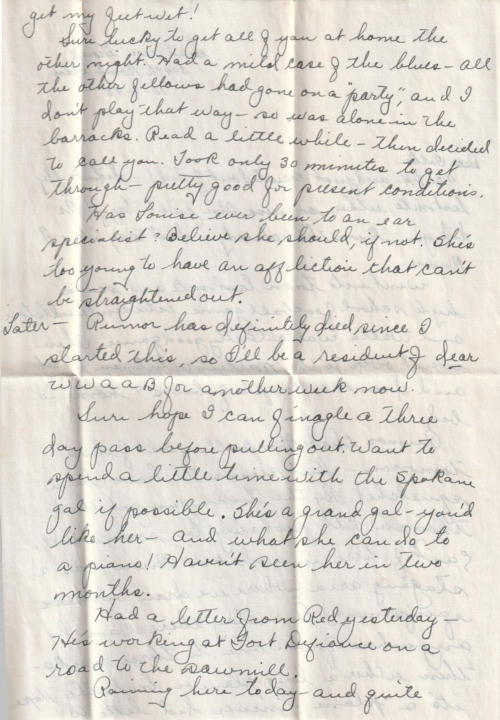 get my feet wet!
Sure lucky to get all of you at home the
other night. Had a mild case of the blues - all
the other fellows had gone on a "party", and I
don't play that way - so was alone in the
barracks. Read a little while - then decided
to call you. Took only 30 minutes to get
through - pretty good for present conditions.
Has Louise ever been to an ear
specialist? Believe she should, if not. She's
too young to have an affliction that can't
be straightened out.
Later - Rumor has definitely died since I
started this, so I'll be a resident of dear
WWAAB for another week now.
Sure hope I can finagle a three
day pass before pulling out. Want to
spend a little time with the Spokane
gal if possible. She's a grand gal - you'd
like her - and what she can do to
a piano! Haven't seen her in two
months.
Had a letter from Red yesterday -
He's working at Fort Defiance on a
road to the sawmill.
Raining here today - and quite